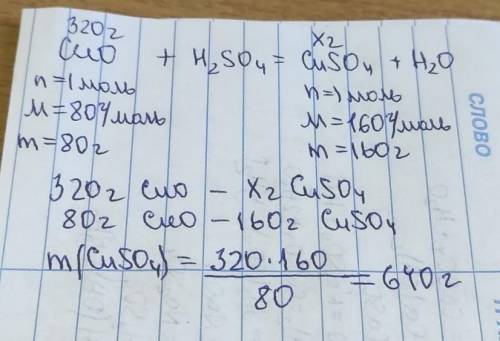 320г x г
CuO + H₂SO₄ = CuSO₄ + H₂O
n=1моль n=1моль
M=80г/моль M=160г/моль
m=80г m=160г
320г CuO – xг CuSO₄
80г CuO – 160г CuSO₄
m(CuSO₄) = 320·160 / 80 = 640г
СЛОВО